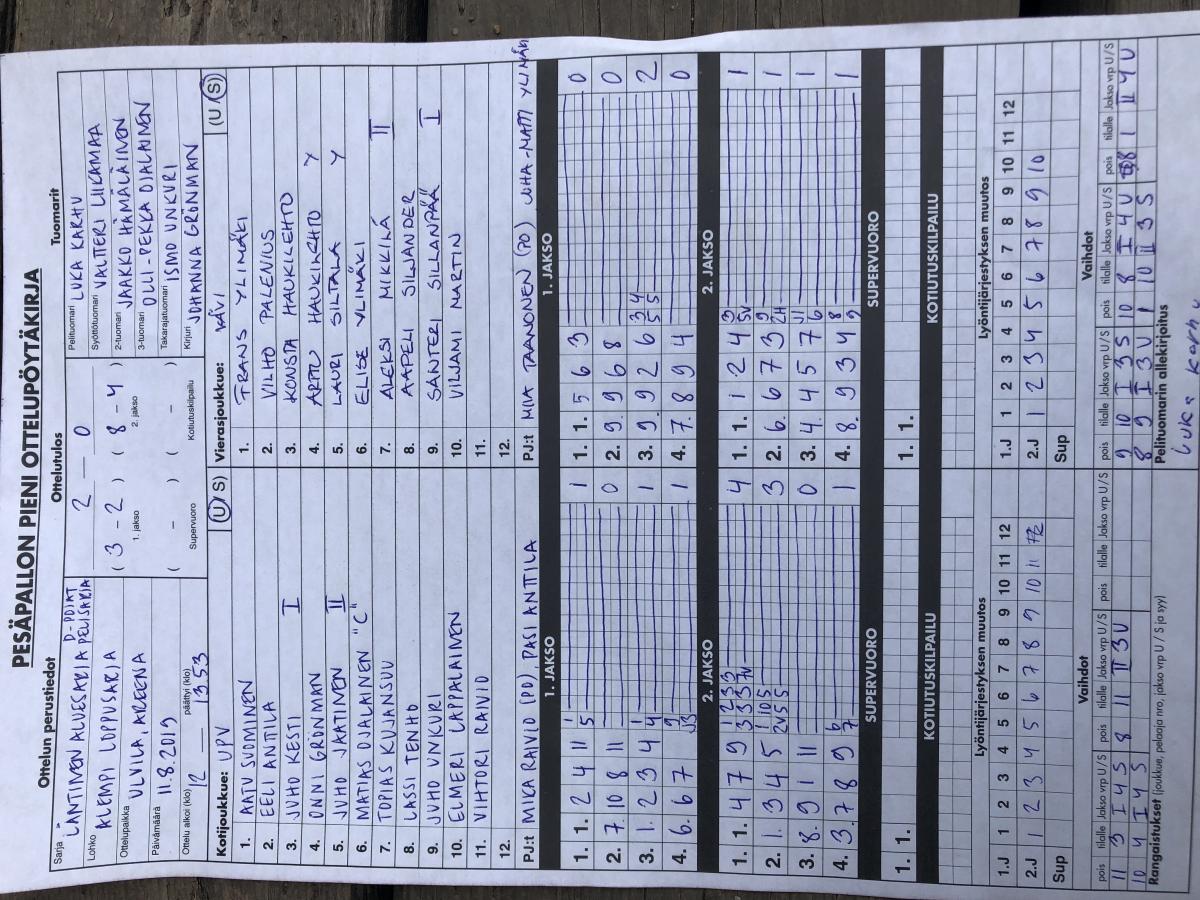 PESÄPALLON PIENI OTTELUPÖYTÄKIRJA
Ottelun perustiedot
Sarja LÄNTINEN ALUESARJA D-POJAT PELISARJA
Lohko ALEMPI LOPPUSARJA
Ottelupaikka ULVILA, AREENA
Päivämäärä 11.8.2019
Ottelu alkoi (klo) 12 päättyi (klo) 13.53
Ottelutulos
2 — 0
( 3 - 2 ) ( 8 - 4 )
1. jakso 2. jakso
( - ) ( - )
Supervuoro Kotiutuskilpailu
Tuomarit
Pelituomari LUKA KARHU
Syöttötuomari VALTTERI LIIKAMAA
2-tuomari JAAKKO HÄMÄLÄINEN
3-tuomari OLLI-PEKKA OJALAINEN
Takarajatuomari ISMO UNKURI
Kirjuri JOHANNA GRÖNMAN
Kotijoukkue: UPV (U/S)
1. AATU SUOMINEN
2. EELI ANTTILA
3. JUHO KESTI I
4. ONNI GRÖNMAN
5. JUHO JAATINEN II
6. MATIAS OJALAINEN "C"
7. TOPIAS KUJANSUU
8. LASSI TENHO
9. JUHO UNKURI
10. ELMERI LAPPALAINEN
11. VIHTORI RAIVIO
12.
PJ:t MIKA RAIVIO (PD), PASI ANTTILA
Vierasjoukkue: (U/S)
1. FRANS YLIMÄKI
2. VILHO PALENIUS
3. KONSTA HAUKILEHTO
4. ARTTU HAUKILEHTO Y
5. LAURI SILTALA Y
6. ELISE YLIMÄKI
7. ALEKSI MIKKILÄ II
8. AAPELI SILANDER
9. SANTERI SILLANPÄÄ I
10. VILJAMI MARTIN
11.
12.
PJ:t MIIA TAANONEN (70) JUHA-MATTI YLIMÄKI
1. JAKSO
1. 1. 2 4 11 1 5 1
2. 7. 10 8 11 0
3. 1. 2 3 4 1 4 1
4. 6. 6 7 1
1. JAKSO
1. 1. 5 6 3 0
2. 9. 9 6 8 0
3. 9. 9 2 6 3 4 5 5 2
4. 7. 8 9 4 0
2. JAKSO
1. 1. 4 7 9 4
2. 1. 3 4 5 3
3. 8. 9 1 11 0
4. 3. 7 8 9 6 7 1
2. JAKSO
1. 1. 1 2 4 3 1
2. 6. 6 7 3 1
3. 4. 4 5 7 1
4. 8. 9 3 4 8 9 1
SUPERVUORO
1. 1.
SUPERVUORO
1. 1.
KOTIUTUSKILPAILU
KOTIUTUSKILPAILU
Lyöntijärjestyksen muutos
1.J 1 2 3 4 5 6 7 8 9 10 11 12
2.J 1 2 3 4 5 6 7 8 9 10 11
Sup
Lyöntijärjestyksen muutos
1.J 1 2 3 4 5 6 7 8 9 10 11 12
2.J 1 2 3 4 5 6 7 8 9 10
Sup
Vaihdot
pois tilalle Jakso vrp U/S pois tilalle Jakso vrp U/S pois tilalle Jakso vrp U/S
11 3 I 4 S 8 11 II 3 U
10 4 I 4 S
Rangaistukset (joukkue, pelaaja nro, jakso vrp U / S ja syy)
Vaihdot
pois tilalle Jakso vrp U/S pois tilalle Jakso vrp U/S pois tilalle Jakso vrp U/S
9 10 I 3 S 10 8 I 4 U 8 1 II 4 U
8 9 I 3 U 1 10 II 3 S
Pelituomarin allekirjoitus
Luka Karhu